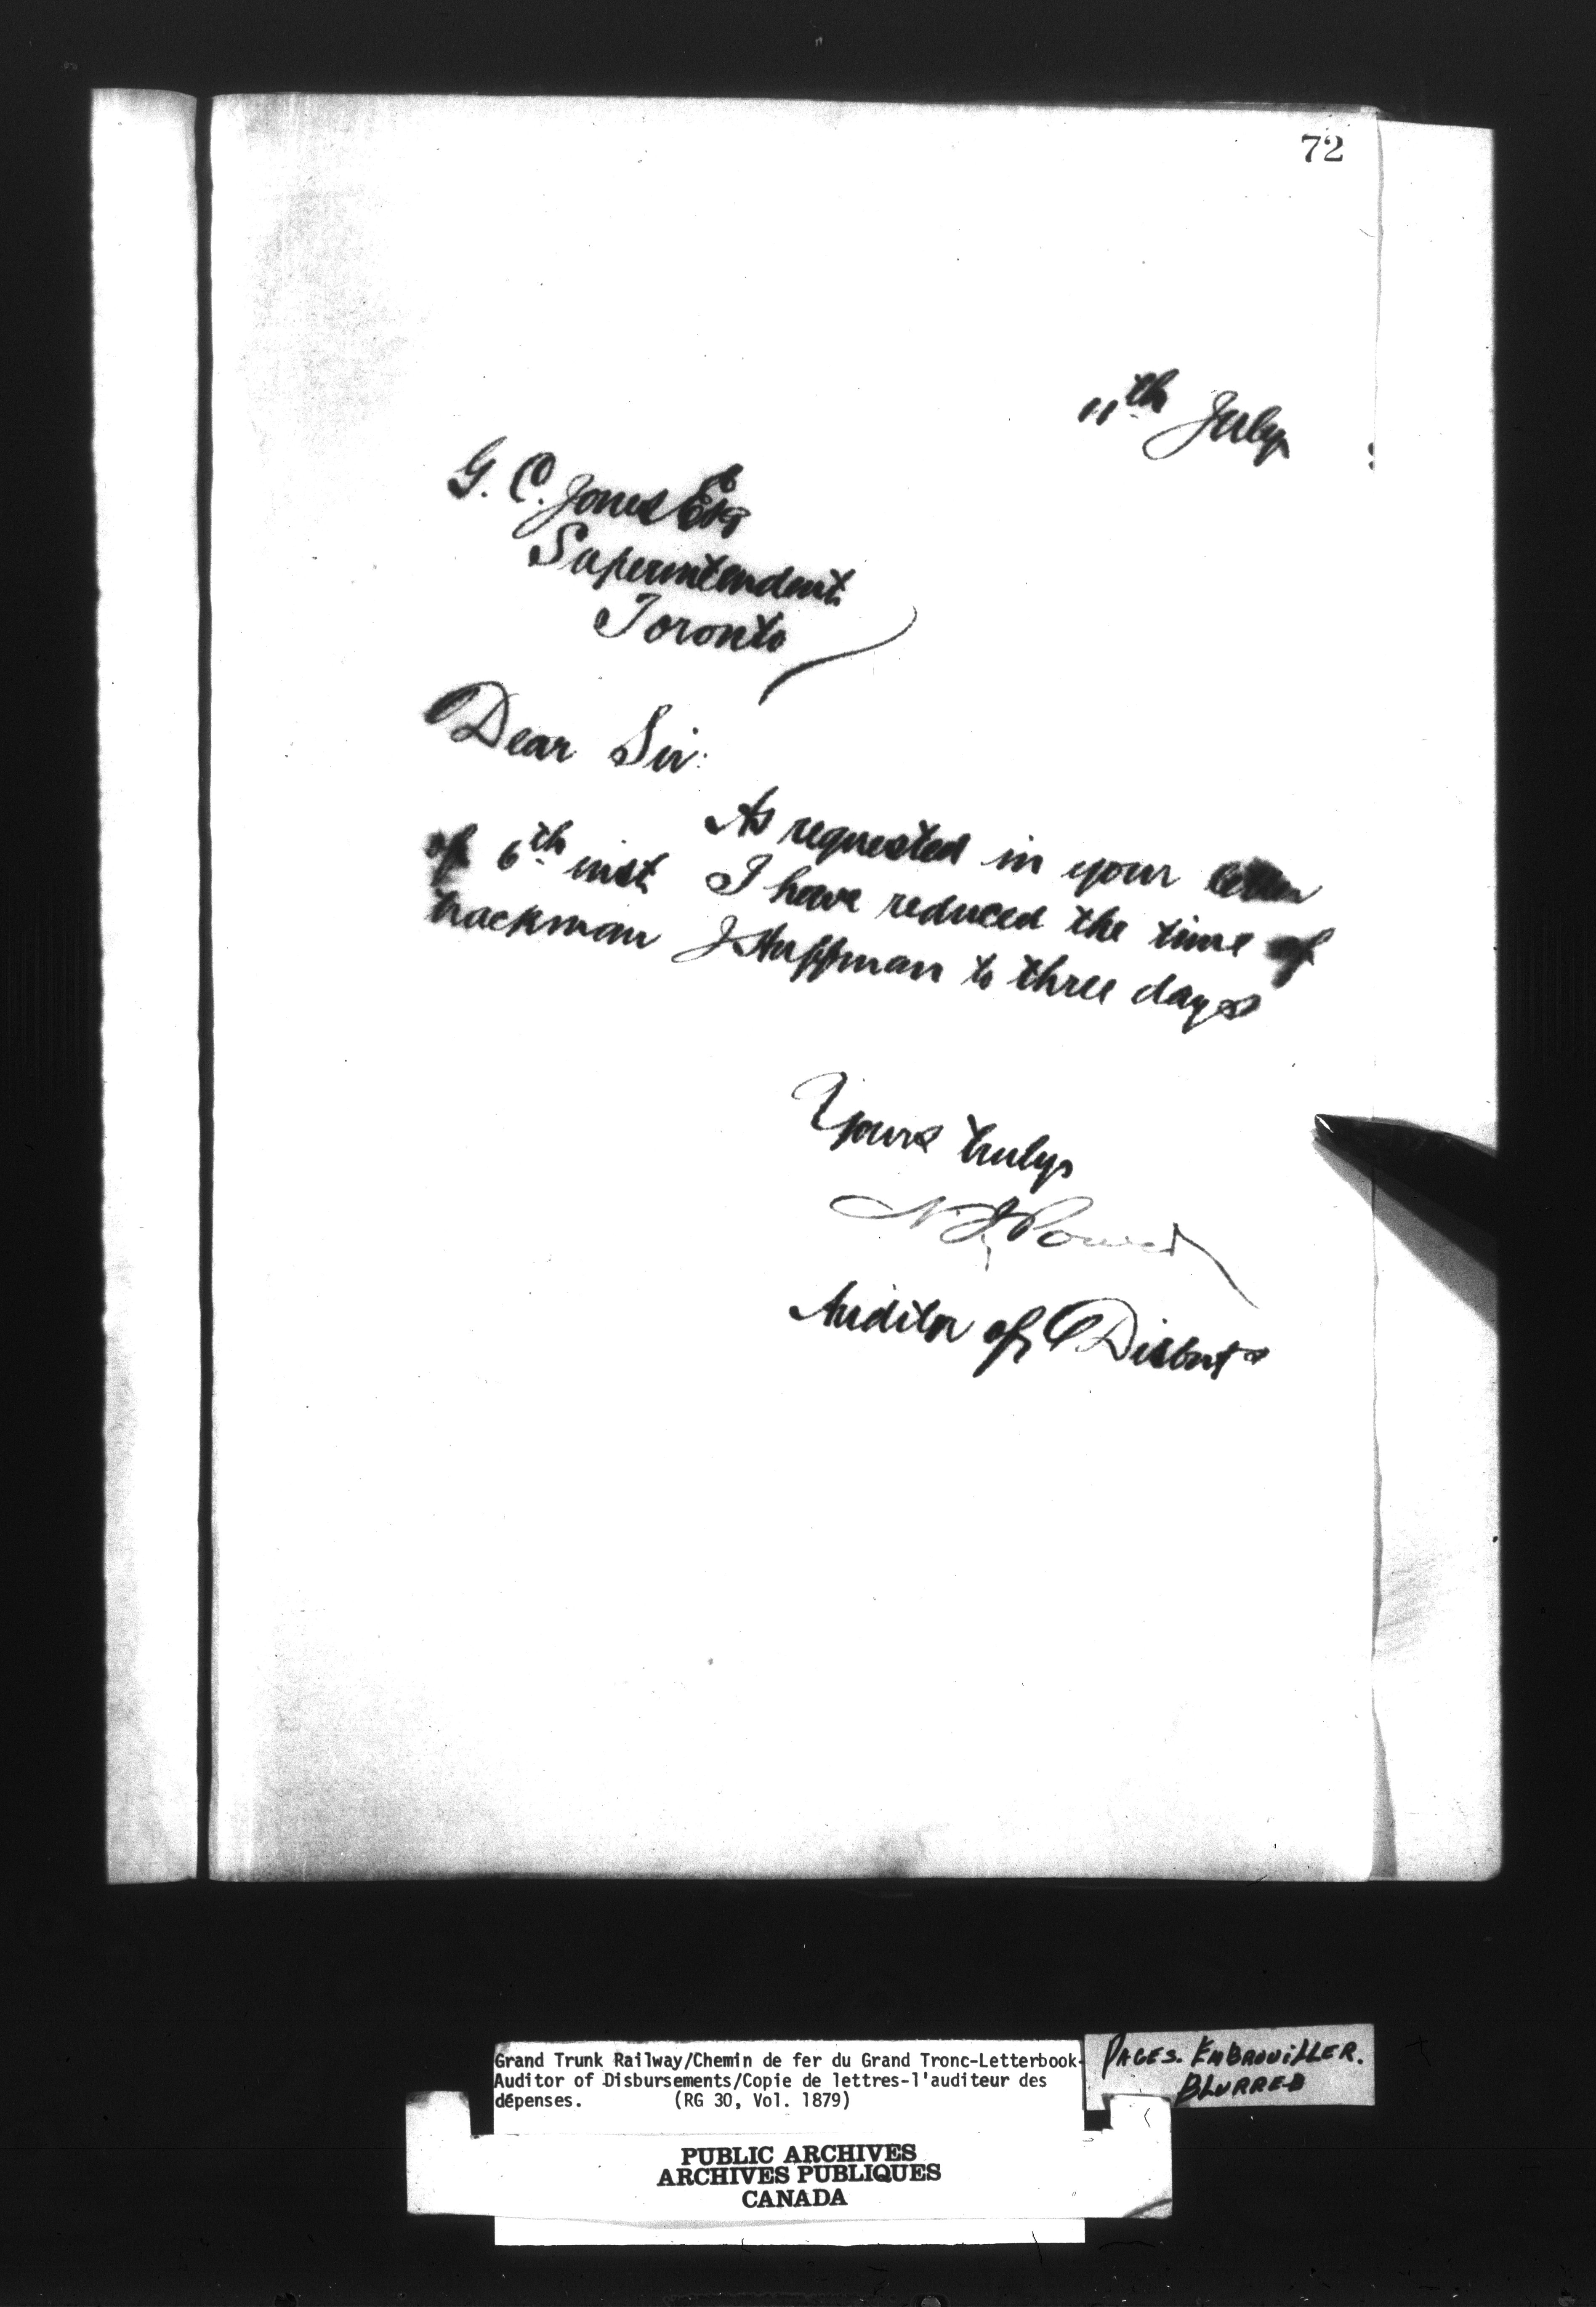 72
11th July
G. C. Jones Esq
Superintendent
Toronto
Dear Sir:
As requested in your letter
of 6th inst I have reduced the time of
trackman J Huffman to three days
Yours truly
N J Power
Auditor of Disbuts
Grand Trunk Railway/Chemin de fer du Grand Tronc-Letterbook-
Auditor of Disbursements/Copie de lettres-l'auditeur des
dépenses. (RG 30, Vol. 1879)
PAGES. EMBROUILLER.
BLURRED
PUBLIC ARCHIVES
ARCHIVES PUBLIQUES
CANADA